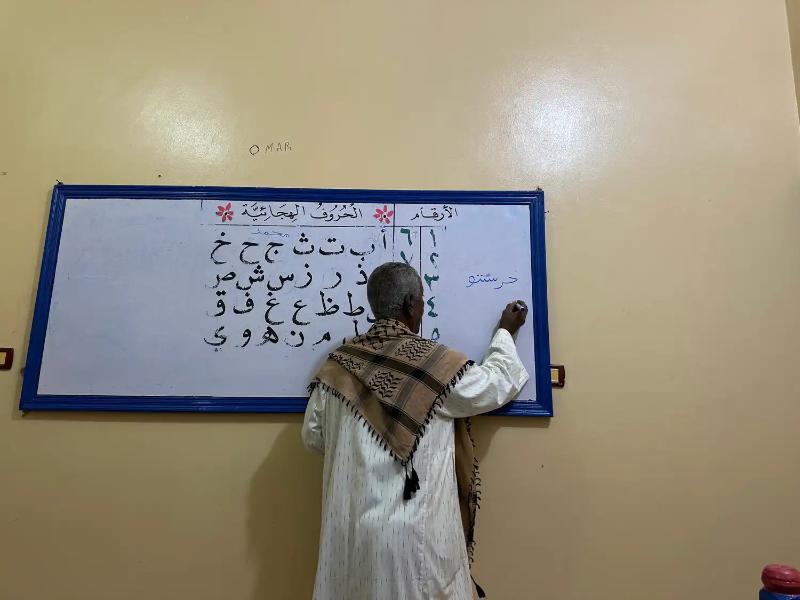 OMAR
الأرقام
الْحُرُوفُ الْهِجَائِيَّة
١ ٦
محمد
أ ب ت ث ج ح خ
٢ ٧
ذ ر ز س ش ص
٣
ط ظ ع غ ف ق
٤
م ن ه و ي
٥